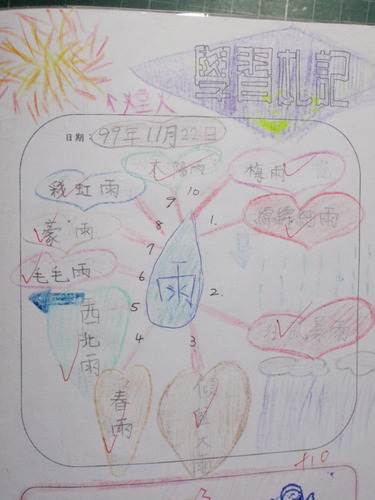 學習札記
日期：99年11月22日
太陽雨
梅雨
彩虹雨
10
9
1.
綿綿細雨
8
7
毛毛雨
6
雨
2.
西北雨
5
狂風暴雨
4
3
春雨
傾盆大雨
+10